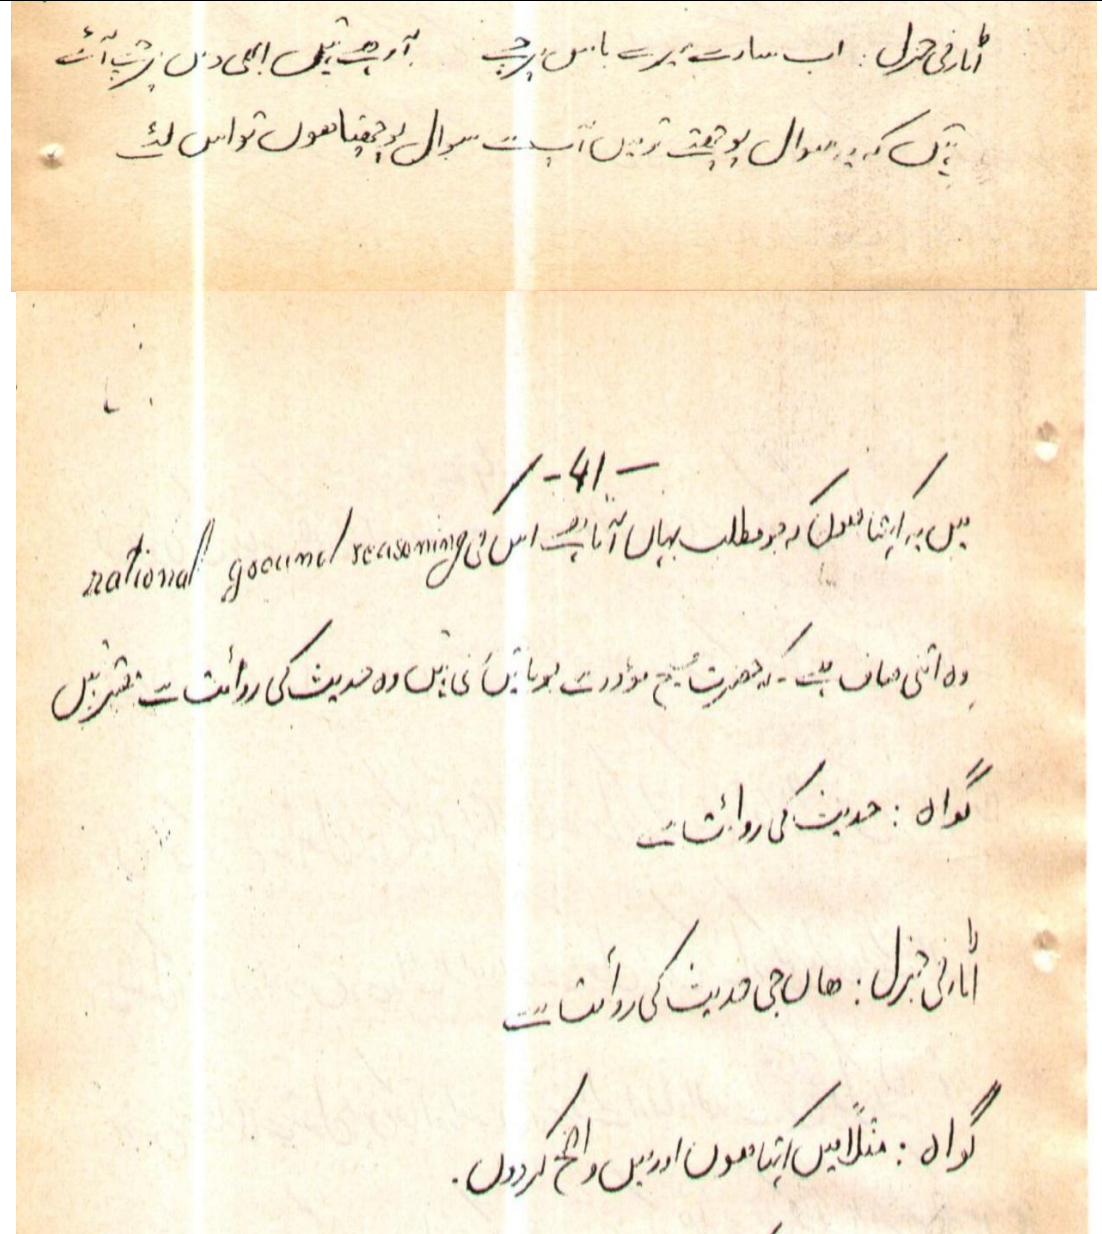 اٹارنی جنرل : اب سارے میرے پاس پرچے آ رہے ہیں ابھی دس پرچے آئے
ہیں کہ یہ سوال پوچھئے تو میں آپ سے سوال پوچھتا ھوں تو اس لئے
-41-
میں یہ کہتا ھوں کہ جو مطلب یہاں آتا ہے اس کی national ground reasoning
وہ اتنی صاف ہے - کہ حضرت مسیح موعود سے جو باتیں کی ہیں وہ حدیث کی روائت سے ہیں
گواہ : حدیث کی روائت سے
اٹارنی جنرل : ھاں جی حدیث کی روائت سے
گواہ : مثلاً میں کہتا ھوں اور میں واضح کر دوں .